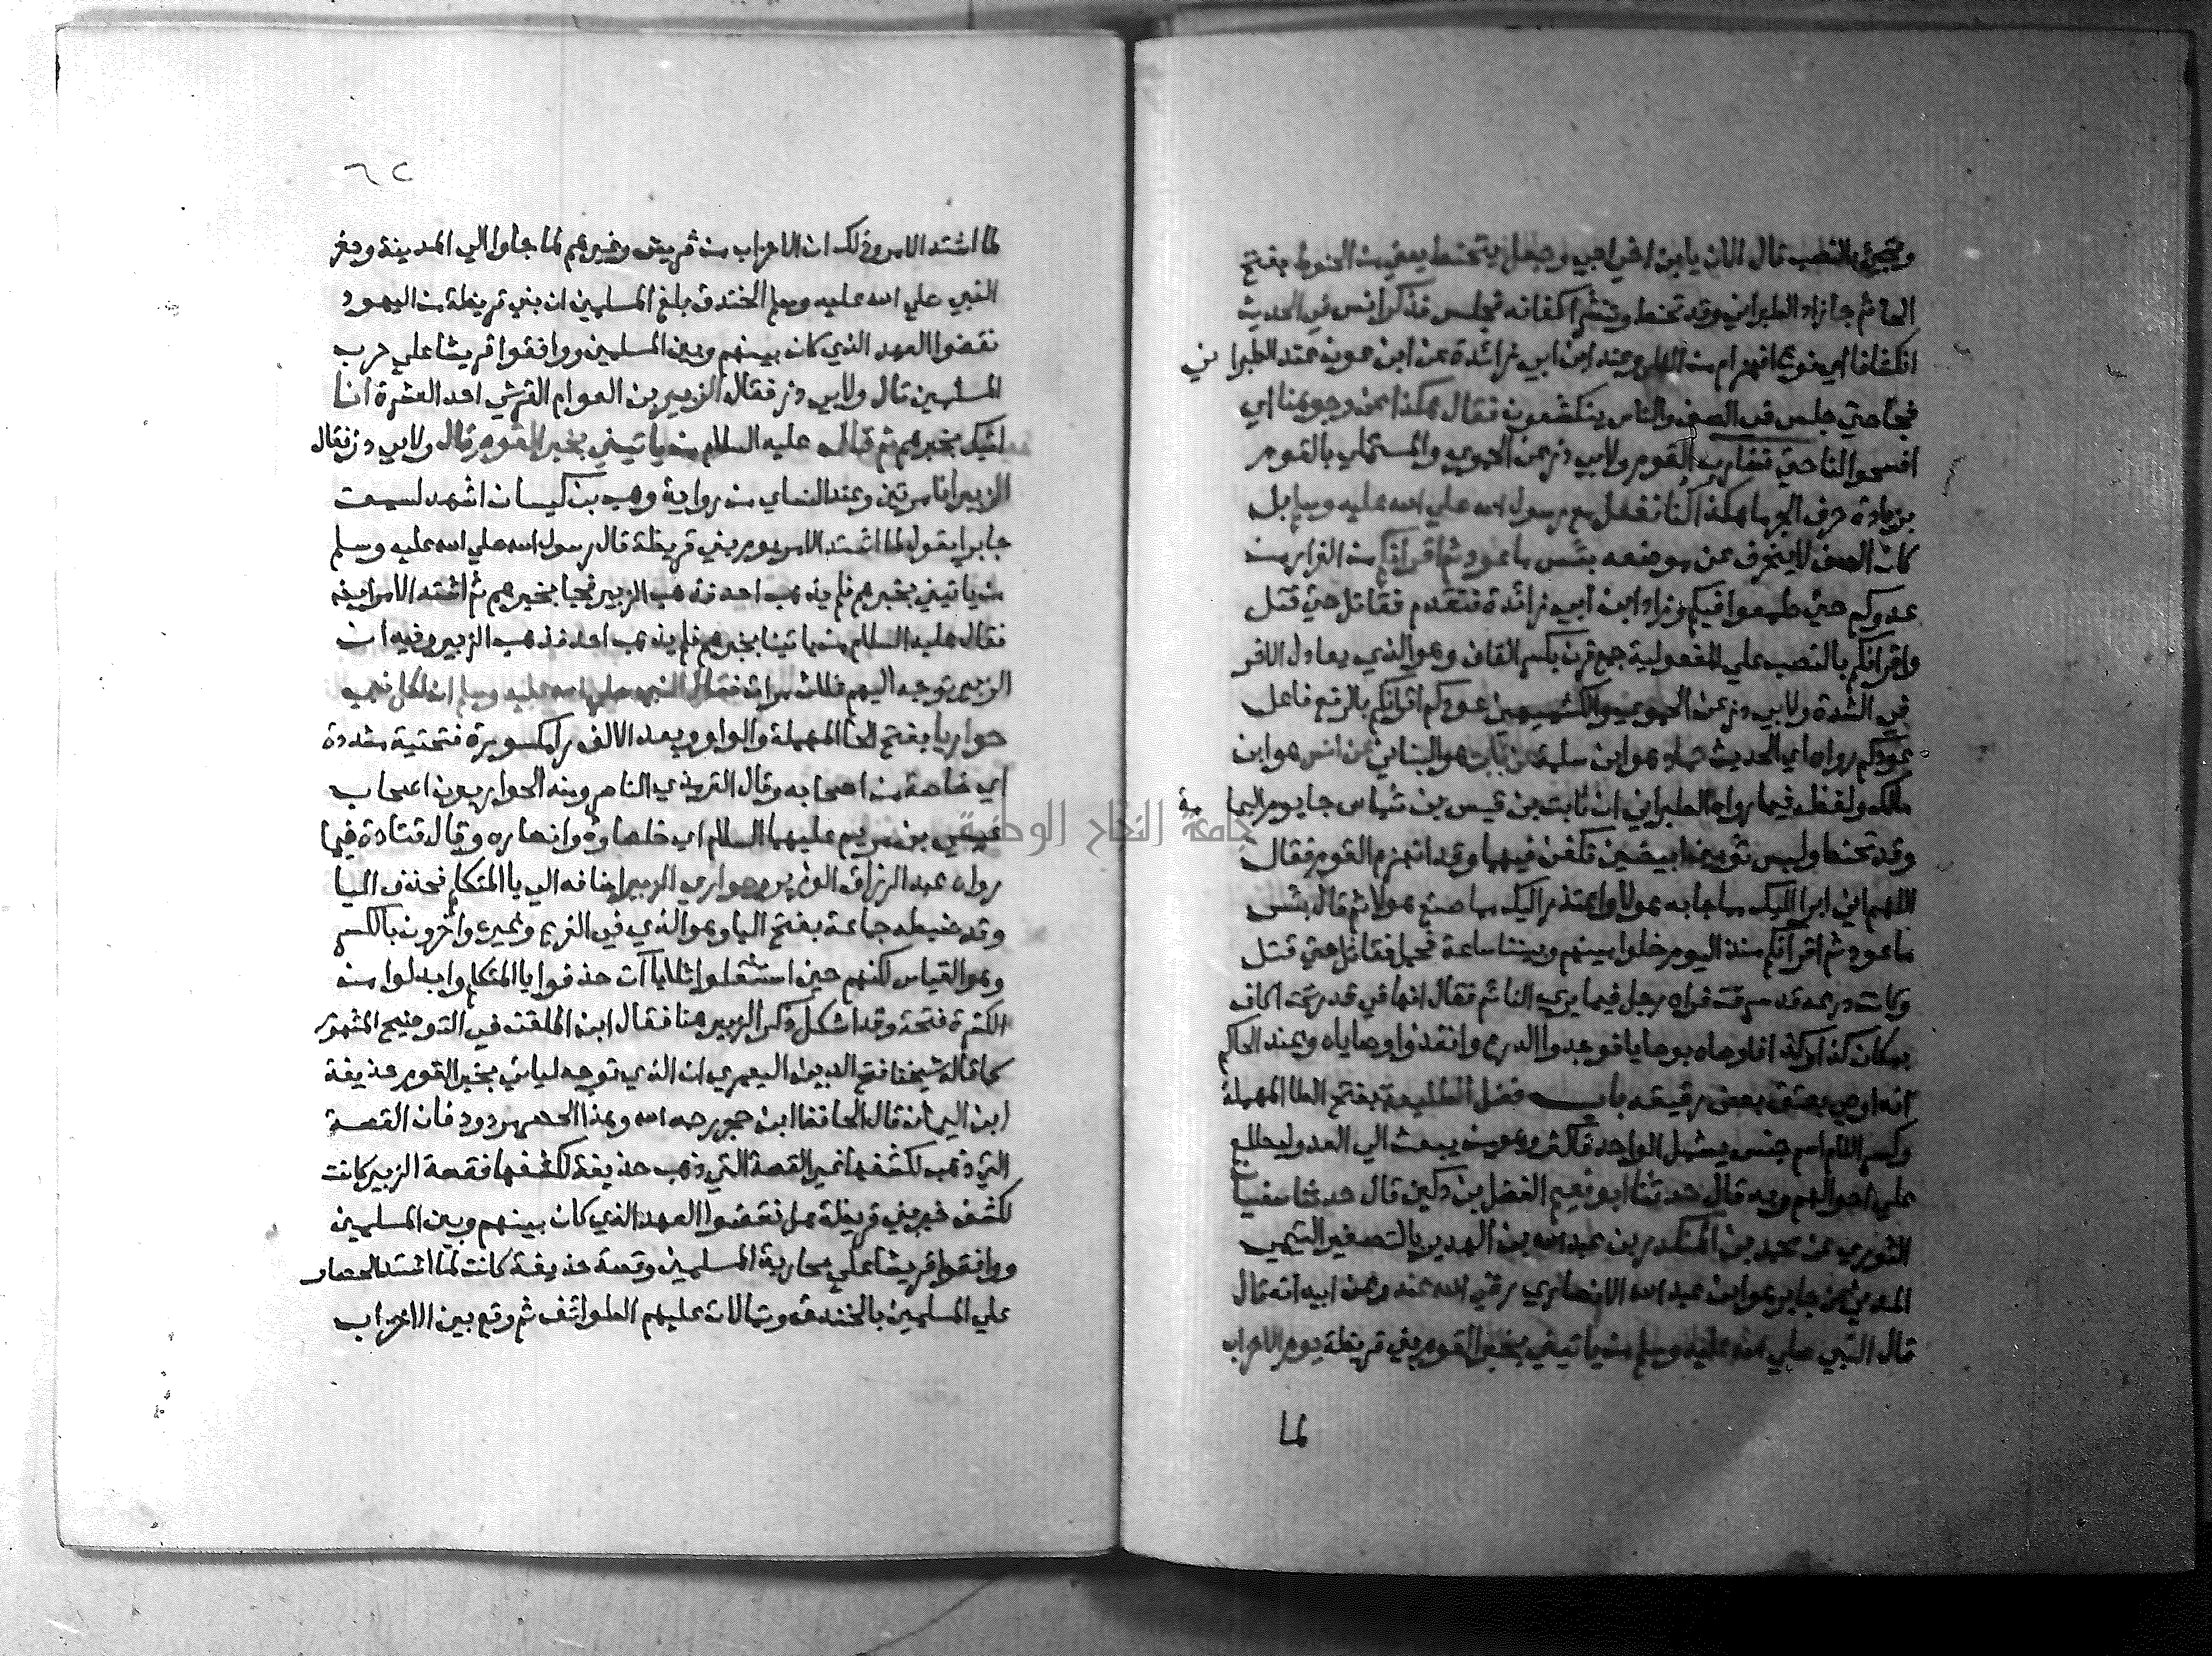 وتجيئ بالنصب قال الان يا بن اخي اجي وجعل يتحنط يعني من الحنوط بفتح
الحا ثم جا زاد الطبراني وقد تحنط ونشر اكفانه فجلس فذكر انس في الحديث
انكشافا اي نوع انهزام من الناس وعند ابن ابي زائدة عن ابن عون عند الطبراني
فجا حتي جلس في الصف والناس ينكشفون فقال هكذا عن وجوهنا اي
افسحوا لنا حتي نضارب القوم ولابي ذر عن الحموي والمستملي بالقوم
بزيادة حرف الجر ما هكذا كنا نفعل مع رسول الله صلي الله عليه وسلم بل
كان الصف لا ينحرف عن موضعه بئس ما عودتم اقرانكم من الفرار من
عدوكم حتي طمعوا فيكم وزاد ابن ابي زائدة فتقدم فقاتل حتي قتل
واقرانكم بالنصب علي المفعولية جمع قرن بكسر القاف وهو الذي يعادل الاخر
في الشدة ولابي ذر عن الحموي والكشميهني عودكم اقرانكم بالرفع فاعل
عودكم رواه اي الحديث حماد هو ابن سلمة عن ثابت هو البناني عن انس هو ابن
مالك ولفظه فيما رواه الطبراني ان ثابت بن قيس بن شماس جا يوم اليمامة
وقد تحنط ولبس ثوبين ابيضين تكفن فيهما وقد انهزم القوم فقال
اللهم اني ابرا اليك مما جا به هولا واعتذر اليك مما صنع هولا ثم قال بئس
ما عودتم اقرانكم منذ اليوم خلوا بيننا وبينهم ساعة فحمل فقاتل حتي قتل
وكانت درعه قد سرقت فراه رجل فيما يري النائم فقال انها في قدر تحت اكاف
بمكان كذا وكذا فاوصاه بوصايا فوجدوا الدرع وانفذوا وصاياه وعند الحاكم
انه اوصي بعتق بعض رقيقه باب فضل الطليعة بفتح الطا المهملة
وكسر اللام اسم جنس يشمل الواحد فاكثر وهو من يبعث الي العدو ليطلع
علي احوالهم وبه قال حدثنا ابو نعيم الفضل بن دكين قال حدثنا سفيان
الثوري عن محمد بن المنكدر بن عبد الله بن الهدير بالتصغير التيمي
المدني عن جابر هو ابن عبد الله الانصاري رضي الله عنه وعن ابيه انه قال
قال النبي صلي الله عليه وسلم من ياتيني بخبر القوم بني قريظة يوم الاحزاب
لما
٦٢
لما اشتد الامر وذلك ان الاحزاب من قريش وغيرهم لما جاوا الي المدينة وحفر
النبي صلي الله عليه وسلم الخندق بلغ المسلمين ان بني قريظة من اليهود
نقضوا العهد الذي كان بينهم وبين المسلمين ووافقوا قريشا علي حرب
المسلمين قال ولابي ذر فقال الزبير بن العوام القرشي احد العشرة انا
اتيك بخبرهم ثم قال عليه السلام من ياتيني بخبر القوم قال ولابي ذر فقال
الزبير انا مرتين وعند النساي من رواية وهب بن كيسان اشهد لسمعت
جابرا يقول لما اشتد الامر يوم بني قريظة قال رسول الله صلي الله عليه وسلم
من ياتيني بخبرهم فلم يذهب احد فذهب الزبير فجا بخبرهم ثم اشتد الامر ايضا
فقال عليه السلام من ياتينا بخبرهم فلم يذهب احد فذهب الزبير وفيه ان
الزبير توجه اليهم ثلاث مرات فقال النبي صلي الله عليه وسلم ان لكل نبي
حواريا بفتح الحا المهملة والواو وبعد الالف را مكسورة فتحتية مشددة
اي خاصة من اصحابه وقال الترمذي الناصر ومنه الحواريون اصحاب
عيسي بن مريم عليهما السلام اي خلصاوه وانصاره وقال قتادة فيما
رواه عبد الرزاق الوزير وحواري الزبير اضافه الي يا المتكلم فحذف اليا
وقد ضبطه جماعة بفتح اليا وهو الذي في الفرع وغيره واخرون بالكسر
وهو القياس لكنهم حين استثقلوا ثلاث ياآت حذفوا يا المتكلم وابدلوا من
الكسرة فتحة وقد اشكل ذكر الزبير هنا فقال ابن الملقن في التوضيح المشهور
كما قاله شيخنا فتح الدين اليعمري ان الذي توجه لياتي بخبر القوم حذيفة
ابن اليمان قال الحافظ ابن حجر رحمه الله وهذا الحصر مردود فان القصة
التي ذهب لكشفها غير القصة التي ذهب حذيفة لكشفها فقصة الزبير كانت
لكشف خبر بني قريظة هل نقضوا العهد الذي كان بينهم وبين المسلمين
ووافقوا قريشا علي محاربة المسلمين وقصة حذيفة كانت لما اشتد الحصار
علي المسلمين بالخندق وتمالات عليهم الطوائف ثم وقع بين الاحزاب
جامعة النجاح الوطنية